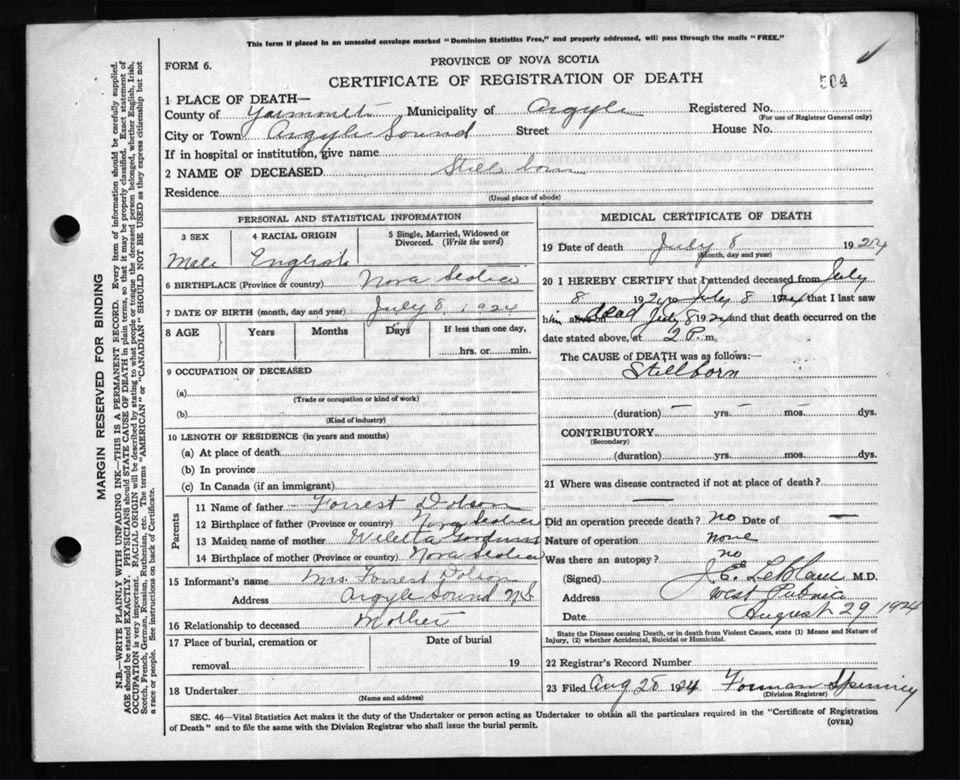 This form if placed in an unsealed envelope marked "Dominion Statistics Free," and properly addressed, will pass through the mails "FREE."
FORM 6.
PROVINCE OF NOVA SCOTIA
CERTIFICATE OF REGISTRATION OF DEATH
504
1 PLACE OF DEATH—
County of Yarmouth Municipality of Argyle Registered No.
(For use of Registrar General only)
City or Town Argyle Sound Street House No.
If in hospital or institution, give name
2 NAME OF DECEASED Still born
Residence
(Usual place of abode)
PERSONAL AND STATISTICAL INFORMATION
3 SEX 4 RACIAL ORIGIN 5 Single, Married, Widowed or Divorced. (Write the word)
Male English
6 BIRTHPLACE (Province or country) Nova Scotia
7 DATE OF BIRTH (month, day and year) July 8, 1924
8 AGE Years Months Days If less than one day,
hrs. or min.
9 OCCUPATION OF DECEASED
(a)
(Trade or occupation or kind of work)
(b)
(Kind of industry)
10 LENGTH OF RESIDENCE (in years and months)
(a) At place of death
(b) In province
(c) In Canada (if an immigrant)
Parents
11 Name of father Forrest Dobson
12 Birthplace of father (Province or country) Nova Scotia
13 Maiden name of mother Goodwin
14 Birthplace of mother (Province or country) Nova Scotia
15 Informant's name Mrs. Forrest Dobson
Address Argyle Sound N.S.
16 Relationship to deceased Mother
17 Place of burial, cremation or Date of burial
removal 19
18 Undertaker
(Name and address)
MEDICAL CERTIFICATE OF DEATH
19 Date of death July 8 1924
(Month, day and year)
20 I HEREBY CERTIFY that I attended deceased from July
8 1924 to July 8 1924 that I last saw
him alive on dead July 8 1924 and that death occurred on the
date stated above, at 2 P. m.
The CAUSE of DEATH was as follows:—
Stillborn
(duration) — yrs. — mos. dys.
CONTRIBUTORY
(Secondary)
(duration) yrs. mos. dys.
21 Where was disease contracted if not at place of death?
—
Did an operation precede death? no Date of —
Nature of operation none
Was there an autopsy? no
(Signed) J. E. LeBlanc M.D.
Address West Pubnico
Date August 29 1924
State the Disease causing Death, or in death from Violent Causes, state (1) Means and Nature of
Injury, (2) whether Accidental, Suicidal or Homicidal.
22 Registrar's Record Number
23 Filed Aug 28 1924 Forman Spinney
(Division Registrar)
SEC. 46—Vital Statistics Act makes it the duty of the Undertaker or person acting as Undertaker to obtain all the particulars required in the "Certificate of Registration
of Death" and to file the same with the Division Registrar who shall issue the burial permit.
(OVER)
MARGIN RESERVED FOR BINDING
N.B.—WRITE PLAINLY WITH UNFADING INK—THIS IS A PERMANENT RECORD. Every item of information should be carefully supplied.
AGE should be stated EXACTLY. PHYSICIANS should STATE CAUSE OF DEATH in plain terms, so that it may be properly classified. Exact statement of
OCCUPATION is very important. RACIAL ORIGIN will be described by stating to what people or tongue the deceased person belonged, whether English, Irish,
Scotch, French, German, Russian, Ruthenian, etc. The terms "AMERICAN" or "CANADIAN" SHOULD NOT BE USED as they express citizenship but not
a race or people. See instructions on back of Certificate.